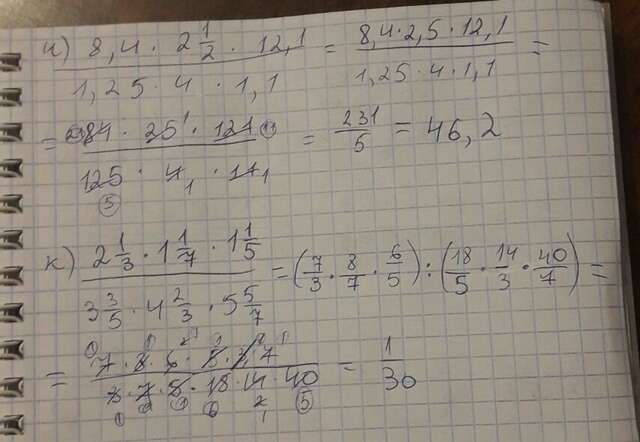 и) (8,4 · 2 1/2 · 12,1)/(1,25 · 4 · 1,1) = (8,4 · 2,5 · 12,1)/(1,25 · 4 · 1,1) =
= (84 · 25 · 121)/(125 · 4 · 11) = 231/5 = 46,2
к) (2 1/3 · 1 1/7 · 1 1/5)/(3 3/5 · 4 2/3 · 5 5/7) = (7/3 · 8/7 · 6/5) : (18/5 · 14/3 · 40/7) =
= (7 · 8 · 6 · 5 · 3 · 7)/(3 · 7 · 5 · 18 · 14 · 40) = 1/30